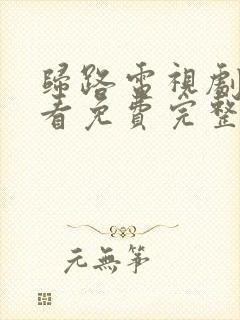 歸路電視劇
看免費完整
元無筝